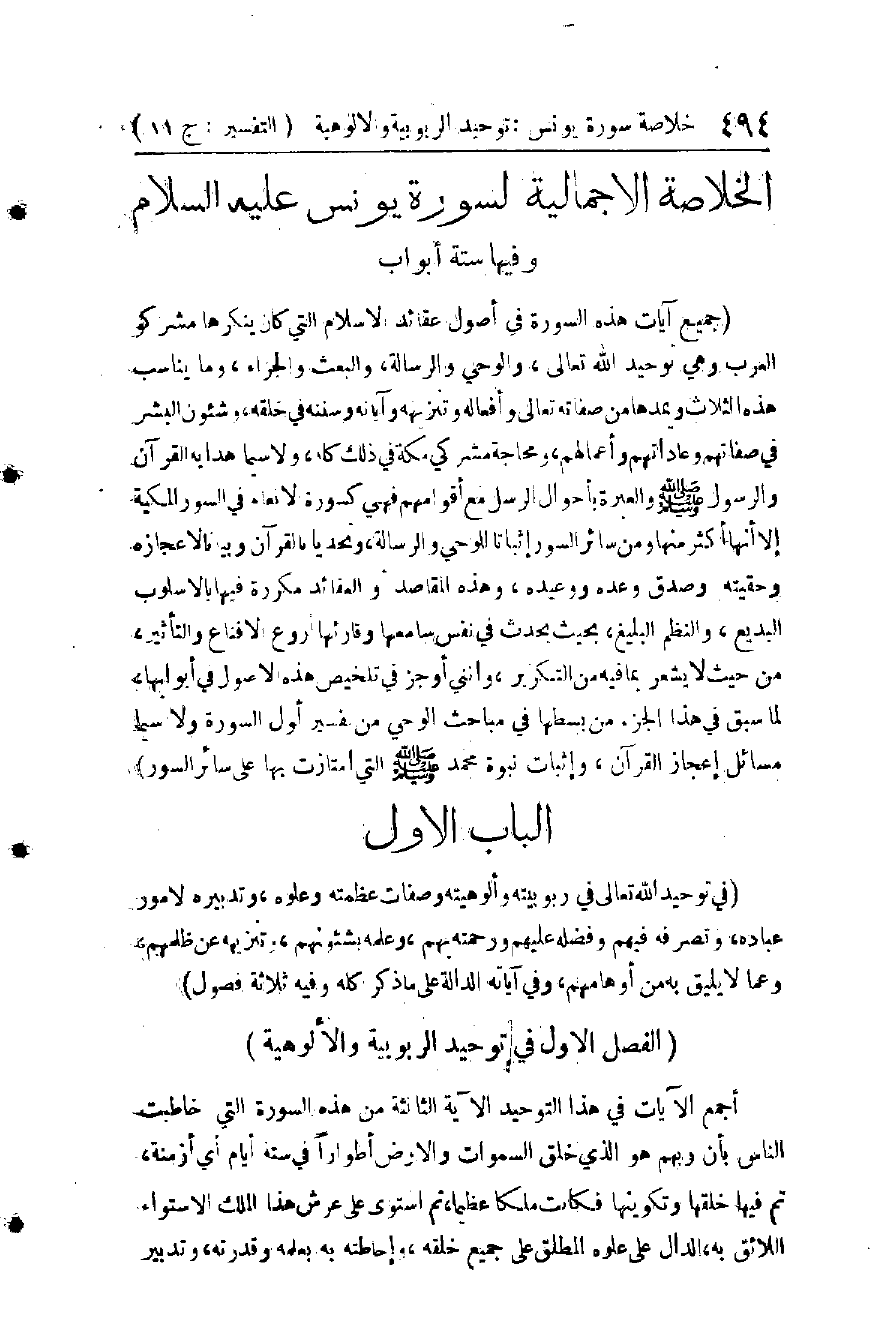 ٤٩٤ خلاصة سورة يونس : توحيد الربوبية والالوهية ( التفسير : ج ١١ )
الخلاصة الاجمالية لسورة يونس عليه السلام
وفيها ستة أبواب
(جميع آيات هذه السورة في أصول عقائد الاسلام التي كان ينكرها مشركو
العرب وهي توحيد الله تعالى ، والوحي والرسالة، والبعث والجزاء ، وما يناسب
هذه الثلاث ويمدها من صفاته تعالى وأفعاله وتنزيهه وآياته وسننه في خلقه، وشئون البشر
في صفاتهم وعاداتهم وأعمالهم، ومحاجة مشركي مكة في ذلك كله، ولاسيما هداية القرآن
والرسول ﷺ والعبرة بأحوال الرسل مع أقوامهم فهي كسورة الانعام في السور المكية
إلا أنها أكثر منها ومن سائر السور إثباتا للوحي والرسالة، وتحديا بالقرآن وبيانا لاعجازه
وحقيته وصدق وعده ووعيده ، وهذه المقاصد و العقائد مكررة فيها بالاسلوب
البديع ، والنظم البليغ، بحيث يحدث في نفس سامعها وقارئها أروع الاقناع والتأثير،
من حيث لا يشعر بما فيه من التكرير ، وانني أوجز في تلخيص هذه الاصول في أبوابها،
لما سبق في هذا الجزء من بسطها في مباحث الوحي من تفسير أول السورة ولا سيما
مسائل إعجاز القرآن ، وإثبات نبوة محمد ﷺ التي امتازت بها على سائر السور)
الباب الاول
(في توحيد الله تعالى في ربوبيته وألوهيته وصفات عظمته وعلوه ، وتدبيره لامور
عباده، وتصرفه فيهم وفضله عليهم ورحمته بهم ، وعلمه بشئونهم ، وتنزيهه عن ظلمهم،
وعما لا يليق به من أوهامهم، وفي آياته الدالة على ماذكر كله وفيه ثلاثة فصول)
( الفصل الاول في توحيد الربوبية والألوهية )
أجمع الآيات في هذا التوحيد الآية الثالثة من هذه السورة التي خاطبت
الناس بأن ربهم هو الذي خلق السموات والارض أطواراً في ستة أيام أي أزمنة،
تم فيها خلقها وتكوينها فكانت ملكا عظيما، ثم استوى على عرش هذا الملك الاستواء
اللائق به، الدال على علوه المطلق على جميع خلقه ، وإحاطته به بعلمه وقدرته، وتدبير